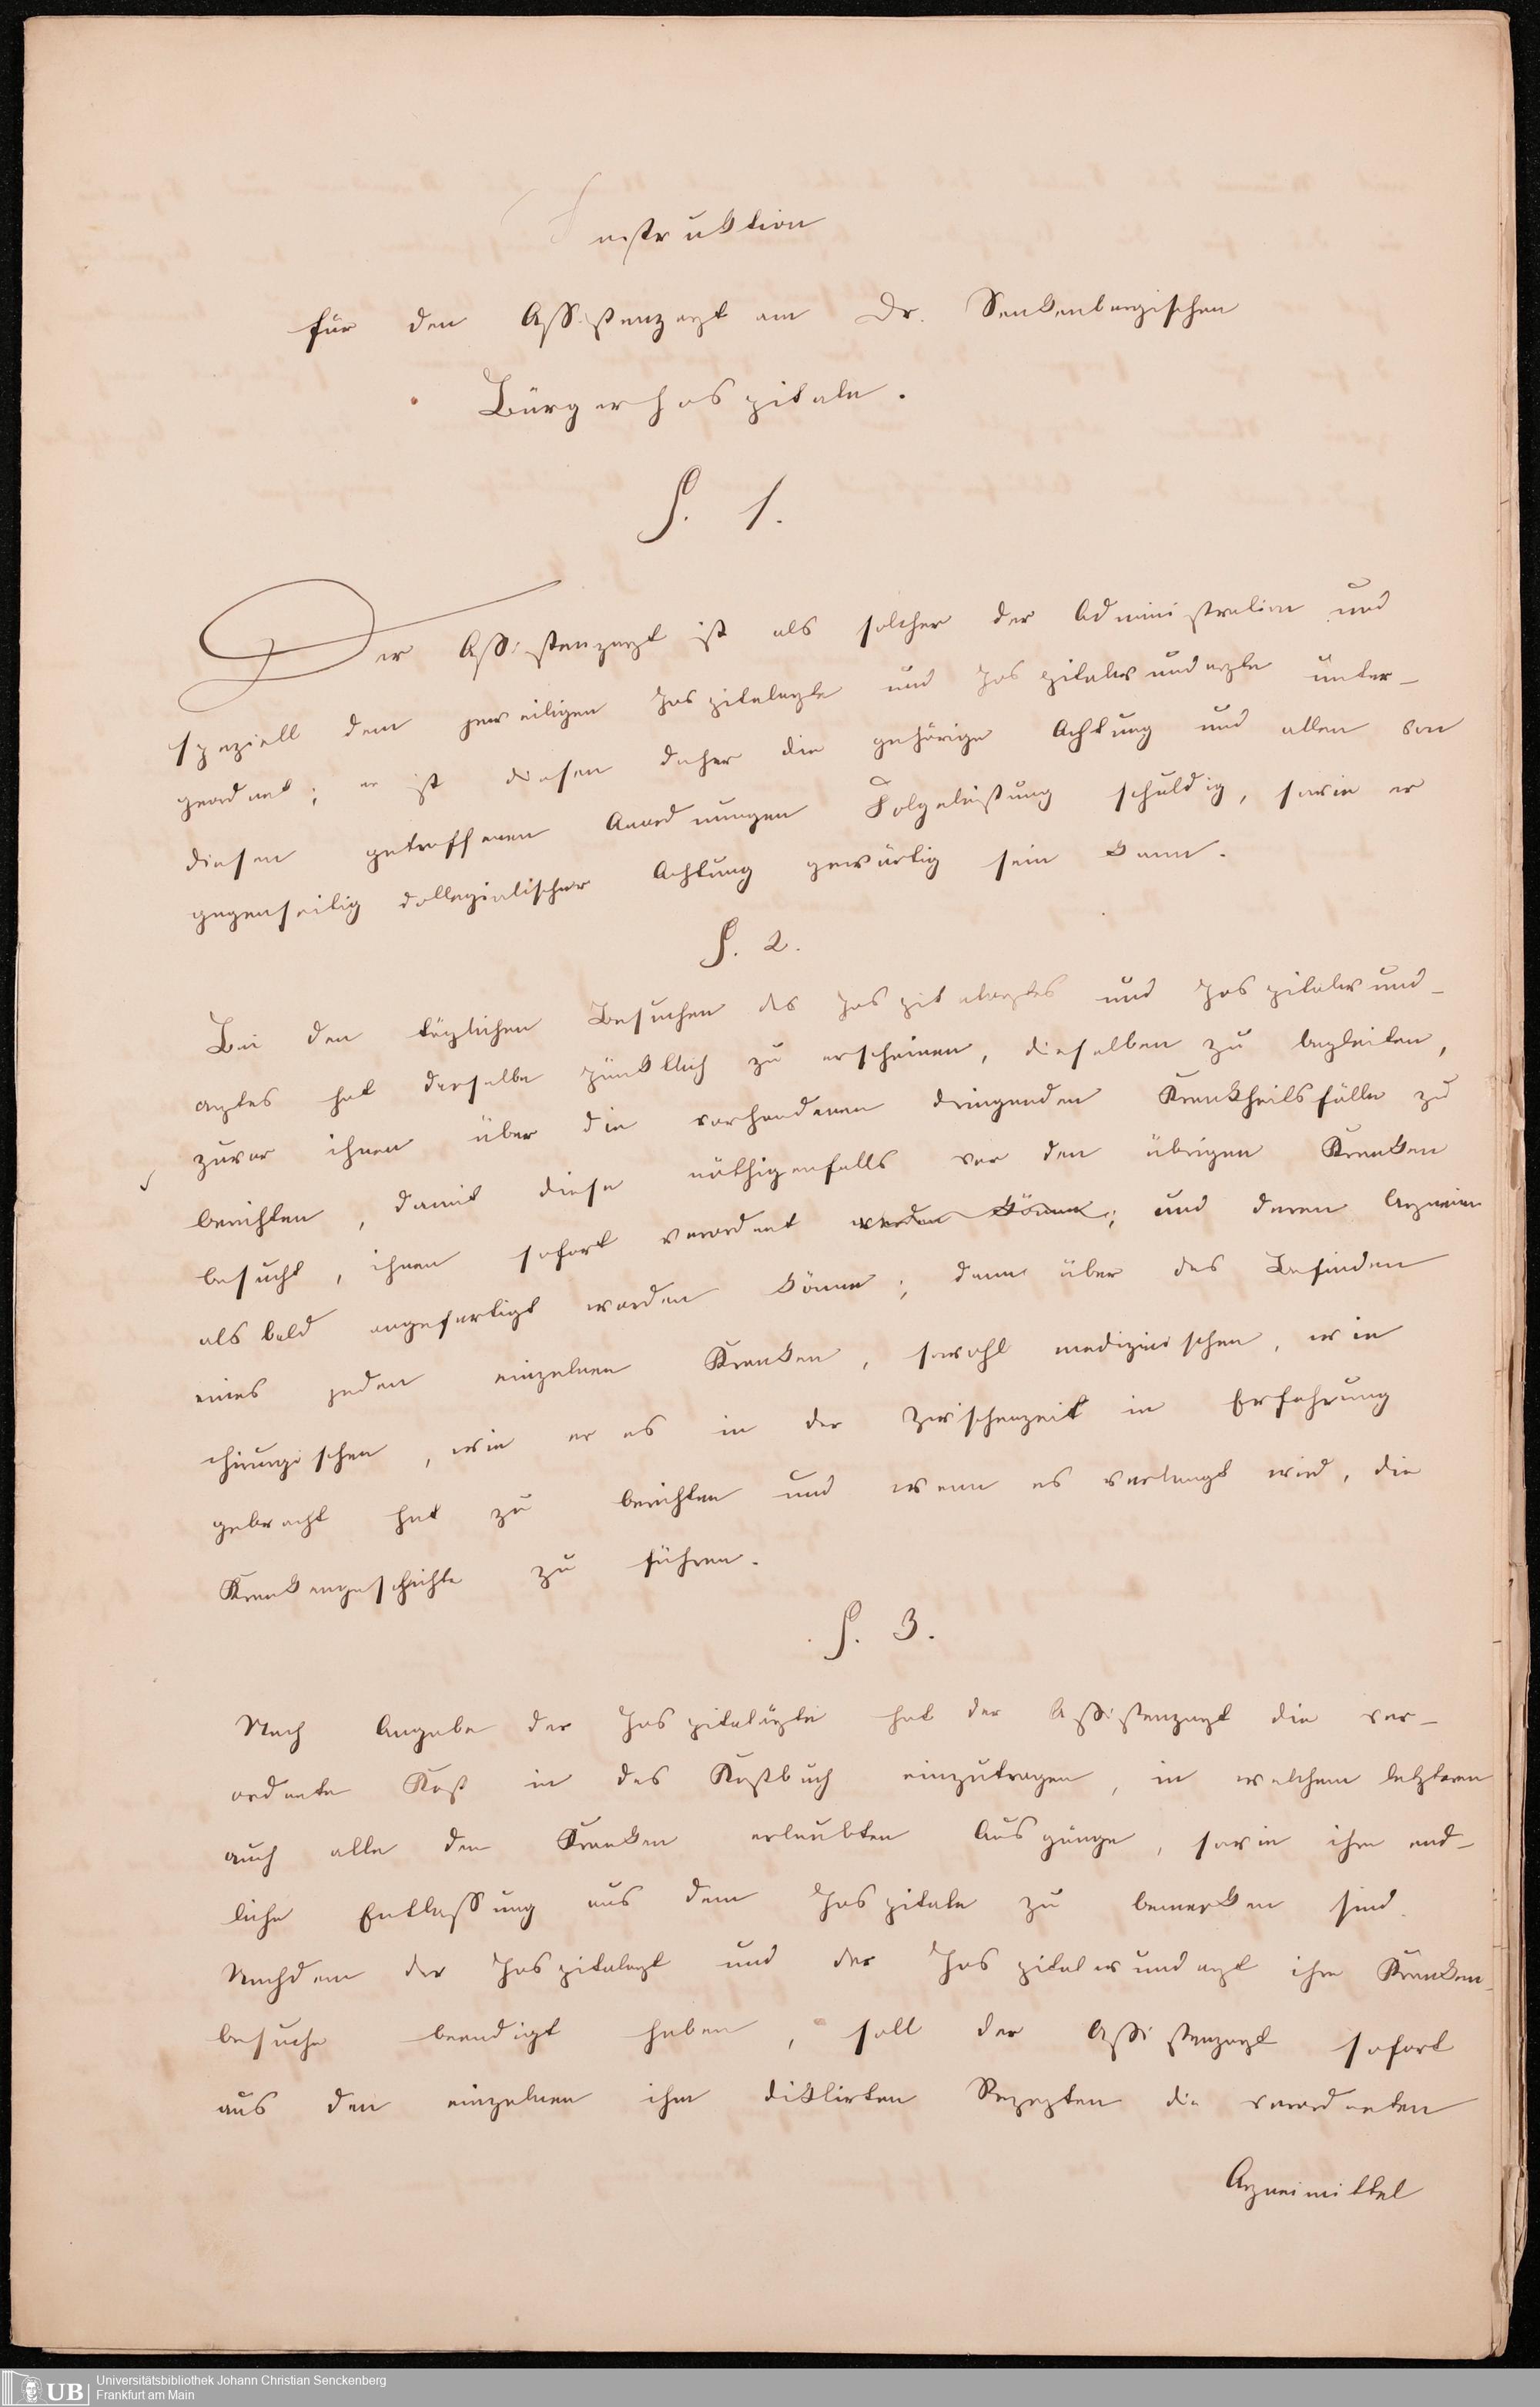 Instruktion
für den Assistenzarzt am Dr. Senkenbergischen
Bürgerhospitale.
§. 1.
Der Assistenzarzt ist als solcher der Administration und
speziell dem jeweiligen Hospitalarzte und Hospitalwundarzte unter-
geordnet; er ist diesen daher die gehörige Achtung und allen von
diesen getroffenen Anordnungen Folgeleistung schuldig, sowie er
gegenseitig collegialischer Achtung gewärtig sein kann.
§. 2.
Bei den täglichen Besuchen des Hospitalarztes und Hospitalwund-
arztes hat derselbe pünktlich zu erscheinen, dieselben zu begleiten,
zuvor ihnen über die vorhandenen dringenden Krankheitsfälle zu
berichten, damit diese nöthigenfalls vor den übrigen Kranken
besucht, ihnen sofort verordnet werden könne; und deren Arzneien
alsbald angefertigt werden könne; dann über das Befinden
eines jeden einzelnen Kranken, sowohl medizinischen, wie
chirurgischen, wie er es in der Zwischenzeit in Erfahrung
gebracht hat zu berichten und wenn es verlangt wird, die
Krankengeschichte zu führen.
§. 3.
Nach Angabe der Hospitalärzte hat der Assistenzarzt die ver-
ordnete Kost in das Kostbuch einzutragen, in welchem letzteren
auch alle den Kranken erlaubten Ausgänge, sowie ihre end-
liche Entlassung aus dem Hospitale zu bemerken sind.
Nachdem der Hospitalarzt und der Hospitalwundarzt ihre Kranken-
besuche beendigt haben, soll der Assistenzarzt sofort
aus den einzelnen ihm diktirten Rezepten die verordneten
Arzneimittel
UB
Universitätsbibliothek Johann Christian Senckenberg
Frankfurt am Main